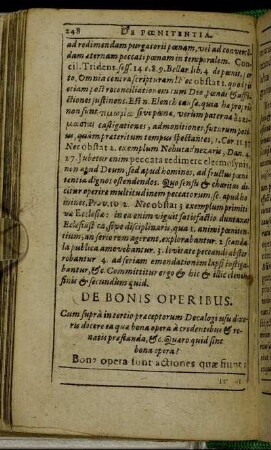 248 DE POENITENTIA.
ad redimendam purgatorii pœnam, vel ad converten-
dam æternam peccati pœnam in temporalem. Con-
cil. Trident. sess. 14. c. 8. 9. Bellar. lib. 4 de pœnit.
to, Omnia contra scripturam! Nec obstat 1. quod
etiam post reconciliationem cum Deo, pœnâ & affli-
ctiones justi
non sunt sive pœnæ, verùm paternæ
castigationes & admonitiones; futurum potiùs
quàm præteritum tempus spectantes, 1. Cor. 11. 32
Nec obstat 2. exemplum Nebucadnezaris. Dan. 4.
27. Jubetur enim peccata redimere eleemosynis,
non apud Deum sed apud homines, ad fructus pœni-
tentiæ dignos ostendendos. Quo sensu & charitas di-
citur operire multitudinem peccatorum, sc. apud ho-
mines, Prov. 10. 12. Nec obstat 3. exemplum primiti-
væ Ecclesiæ: in ea enim viguit satisfactio duntaxat
Ecclesiastica, sive disciplinaris, qua 1. animi pœniten-
tium, an seriò rem agerent, explorabantur. 2. scanda-
la publica amovebantur. 3. levitate peccandi abster-
rebantur 4. ad seriam emendationem lapsi instiga-
bantur, &c. Committitur ergo & hîc & illîc elenchus
finis & secundùm quid.
DE BONIS OPERIBUS.
Cum suprà in tertio præceptorum Decalogi usu dixe-
ris docere ea quæ bona opera à credentibus & re-
natis præstanda, &c. Quæro quid sint
bona opera?
Bona opera sunt actiones quæ fiunt à